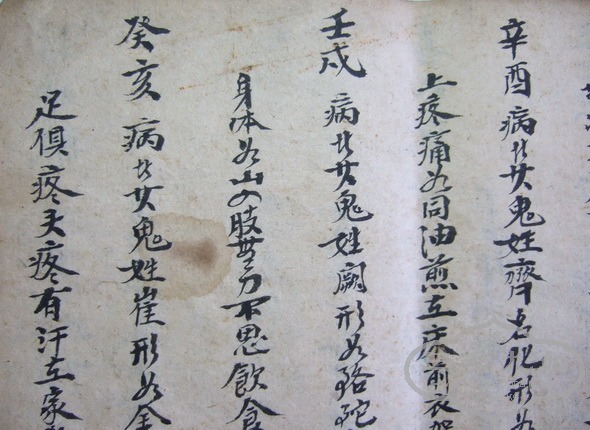 辛酉 病廿女鬼姓齊名肥形如
上疼痛如同油煎在床前衣架
壬戌 病廿女鬼姓闕形如駱駝
身体如山四肢無力不思飲食
癸亥 病廿女鬼姓崔形如金
足俱疼头疼有汗在家